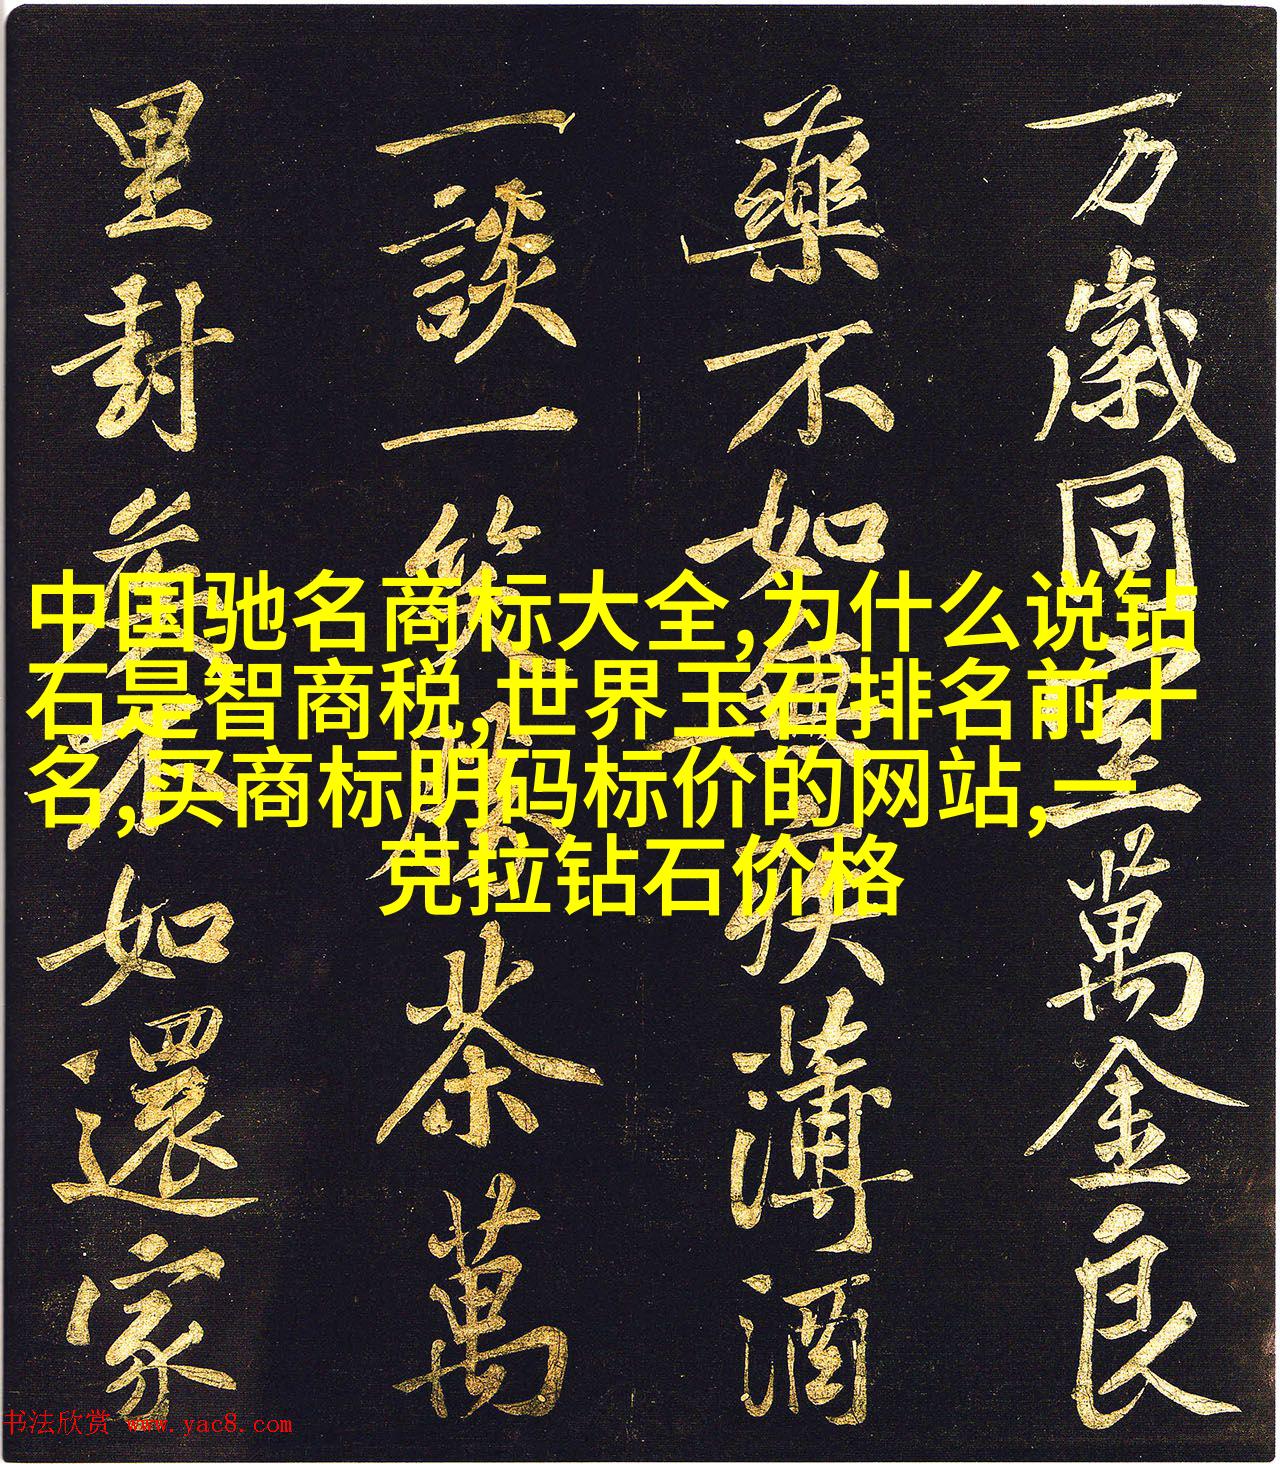 万歲同室萬金良
藥不如無疾薄酒
一談一笑勝茶萬
里封侯不如還家
中国驰名商标大全,为什么说钻
石是智商税,世界玉石排名前十
名,买商标明码标价的网站,一
克拉钻石价格
书法欣赏 www.yac8.com